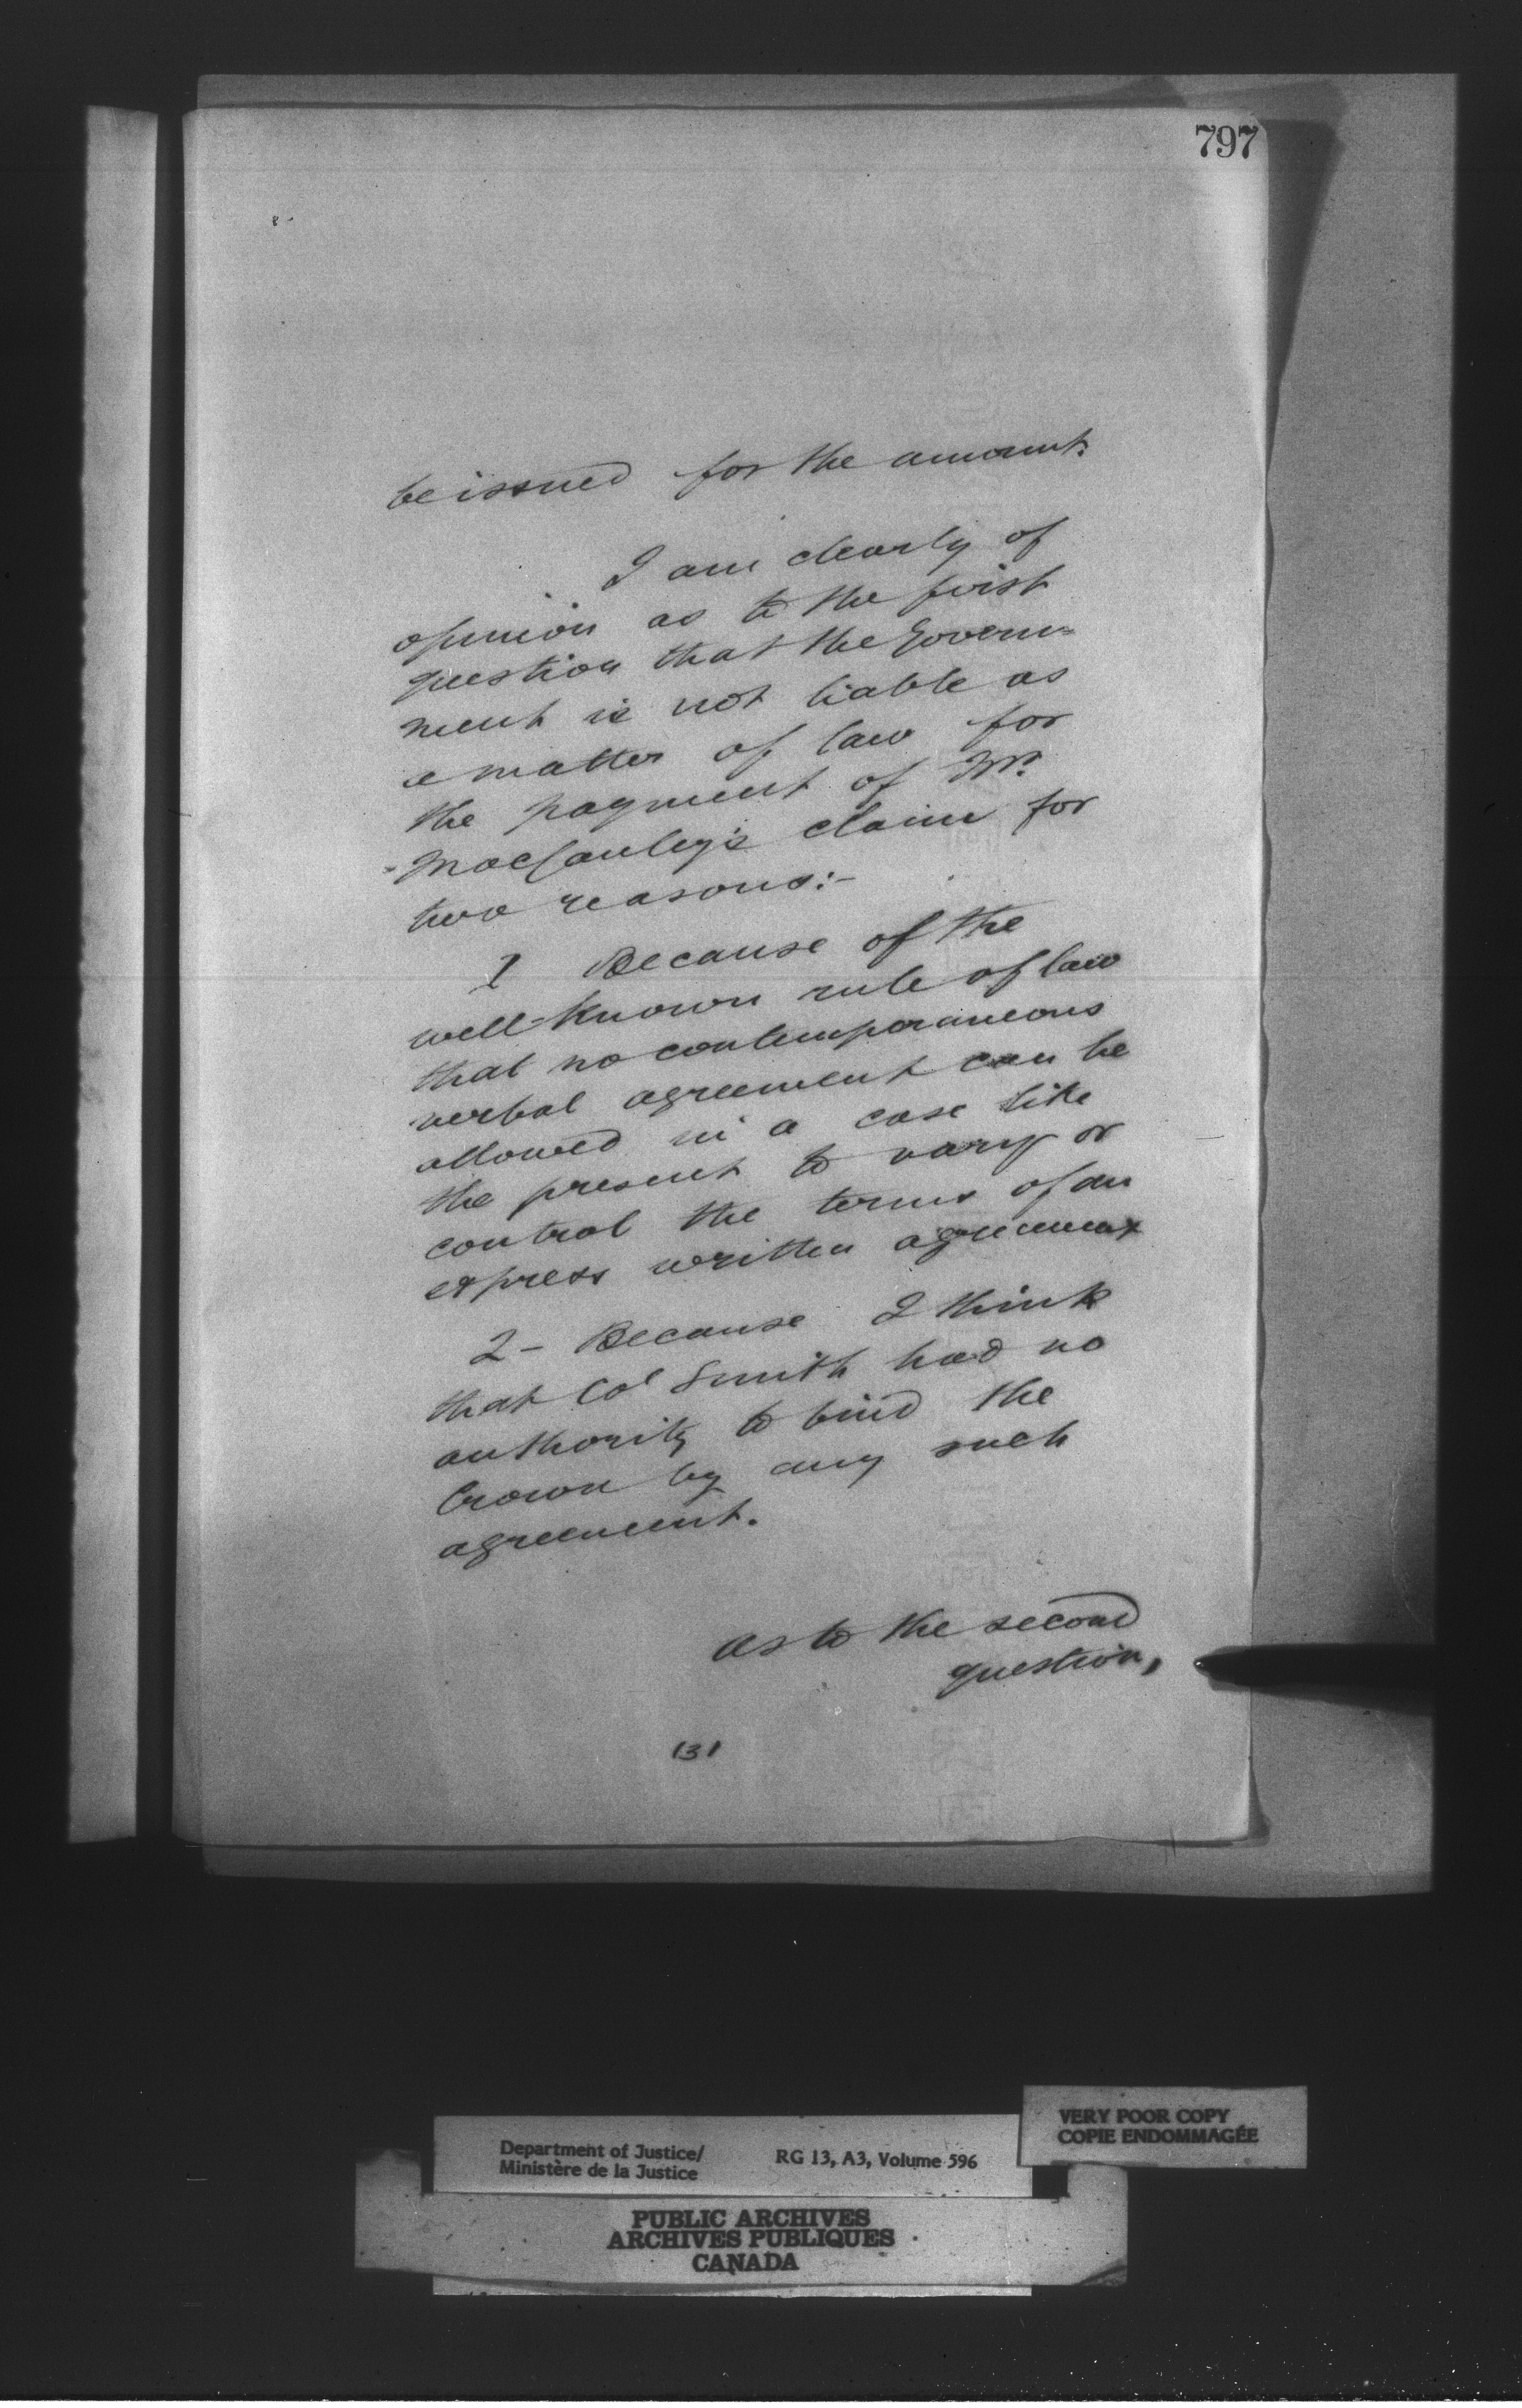 797
be issued for the amount.
I am clearly of
opinion as to the first
question that the Govern=
ment is not liable as
a matter of law for
the payment of Mr.
claim for
two reasons:-
1 Because of the
well-known rule of law
that no contemporaneous
verbal agreement can be
allowed in a case like
the present to vary or
control the terms of an
express written agreement
2- Because I think
that Col Smith had no
authority to bind the
Crown by any such
agreement.
As to the second
question,
131
VERY POOR COPY
COPIE ENDOMMAGÉE
Department of Justice/
Ministère de la Justice
RG 13, A3, Volume 596
PUBLIC ARCHIVES
ARCHIVES PUBLIQUES
CANADA